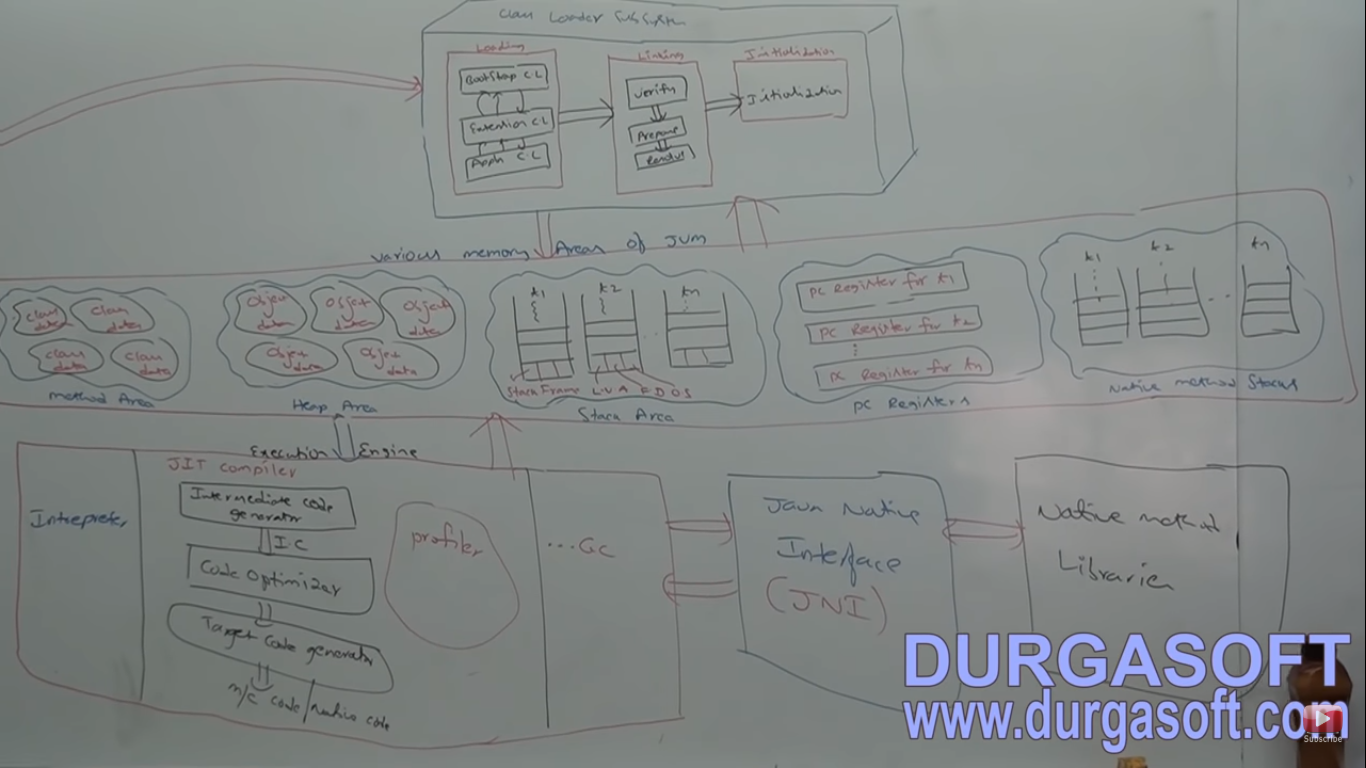 Class Loader Subsystem
Loading
Linking
Initialization
BootStrap C.L
Extention CL
Appln C.L
verify
Prepare
Resolve
Initialization
various memory Areas of JVM
class data
class data
class data
class data
method Area
Object data
Object data
Object data
Object data
Object data
Heap Area
t1
t2
tn
Stack Frame
LVA
FD
OS
Stack Area
PC Register for t1
PC Register for t2
PC Register for tn
PC Registers
t1
t2
tn
Native method Stacks
Execution Engine
Intrepreter
JIT compiler
Intermediate code
generator
I.C
Code Optimizer
Target code generator
m/c code/native code
profiler
...GC
Java Native
Interface
(JNI)
Native method
Libraries
DURGASOFT
www.durgasoft.com
Subscribe